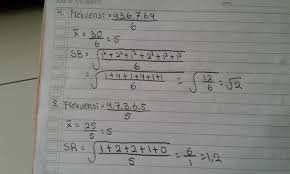 4. Frekuensi = 4.3.6.7.6.4
6
x̄ = 30 = 5
6
SB = √1²+2²+1²+2²+1²+1²
6
= √1+4+1+4+1+1 = √12 = √2
6 6
5. Frekuensi = 4.7.3.6.5
5
x̄ = 25 = 5
5
SB = √1+2+2+1+0 = 6 = 1,2
5 1